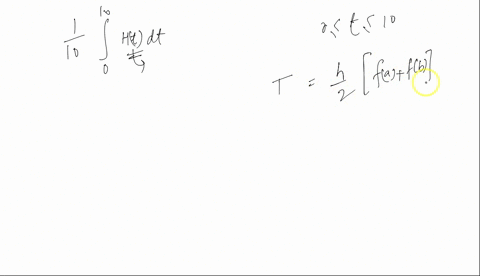 1/10 ∫₀¹⁰ H(t) dt
0 ≤ t ≤ 10
T = h/2 [f(a)+f(b)]